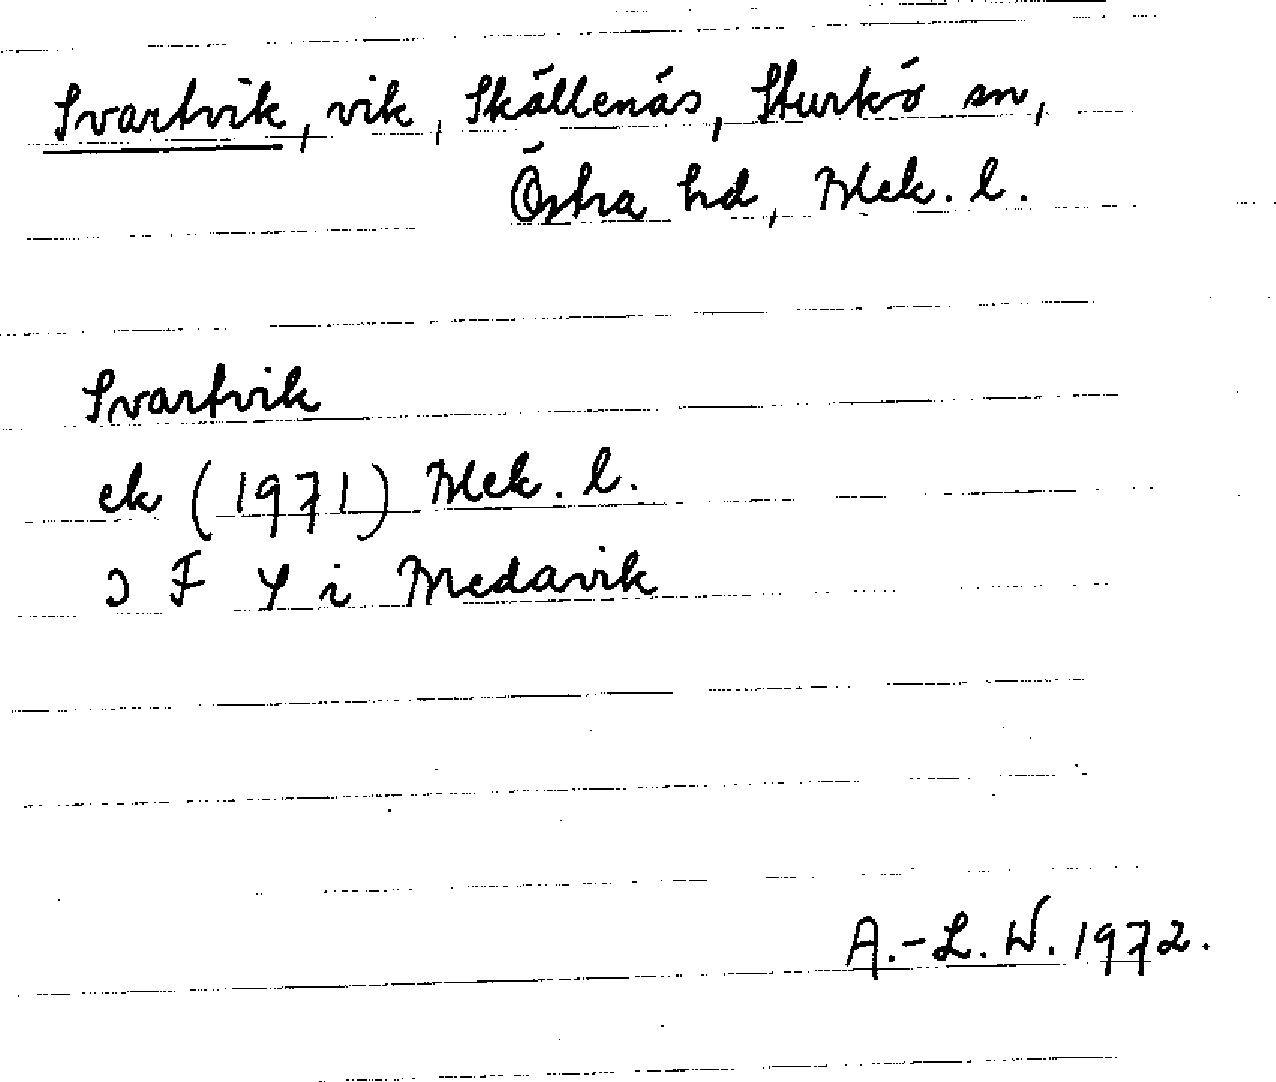 Svartvik, vik, Skällenäs, Sturkö sn,
Östra hd, Blek. l.
Svartvik
ek (1971) Blek. l.
J F Y i Bredavik
A.-L. W. 1972.